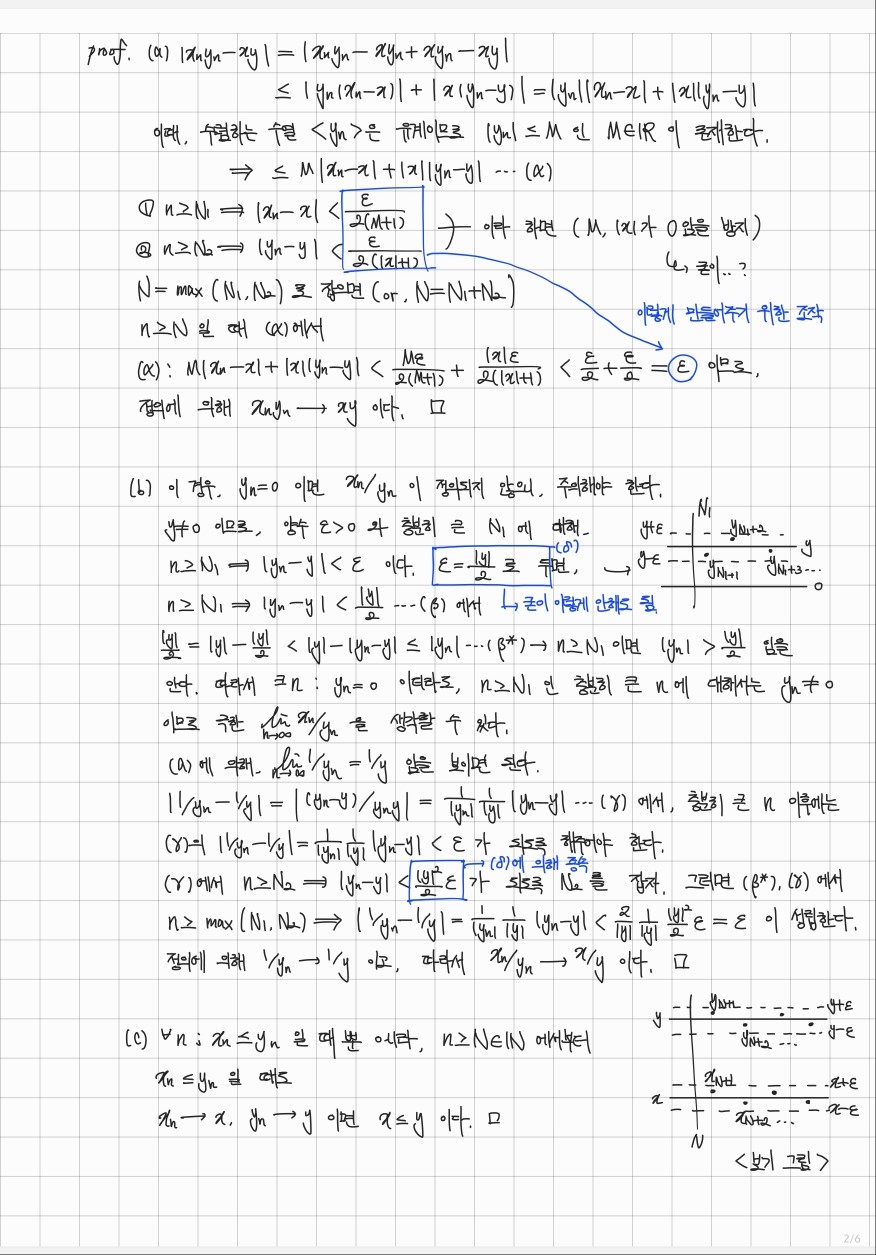 proof. (a) |xₙyₙ-xy| = |xₙyₙ - xyₙ + xyₙ - xy|
≤ |yₙ(xₙ-x)| + |x(yₙ-y)| = |yₙ||xₙ-x| + |x||yₙ-y|
이때, 수렴하는 수열 <yₙ>은 유계이므로 |yₙ| ≤ M 인 M∈ℝ 이 존재한다.
⇒ ≤ M|xₙ-x| + |x||yₙ-y| ··· (α)
① n≥N₁ ⇒ |xₙ-x| < ε/2(M+1)
② n≥N₂ ⇒ |yₙ-y| < ε/2(|x|+1)
이라 하면 (M, |x|가 0임을 방지)
↳ 굳이..?
N = max(N₁,N₂) 로 잡으면 (or, N=N₁+N₂)
이렇게 만들어주기 위한 조작
n≥N 일 때 (α)에서
(α): M|xₙ-x| + |x||yₙ-y| < Mε/2(M+1) + |x|ε/2(|x|+1) < ε/2 + ε/2 = ε 이므로,
정의에 의해 xₙyₙ → xy 이다. □
(b) 이 경우, yₙ=0 이면 xₙ/yₙ 이 정의되지 않으니, 주의해야 한다.
y≠0 이므로, 양수 ε>0 와 충분히 큰 N₁ 에 대해
n≥N₁ ⇒ |yₙ-y| < ε 이다. ε = |y|/2 로 두면, (δ)
n≥N₁ ⇒ |yₙ-y| < |y|/2 ··· (β) 에서 ↳ 굳이 이렇게 안해도 됨.
N₁
y+ε y_{N₁+2}
y
y-ε y_{N₁+1} y_{N₁+3} ···
0
|y|/2 = |y| - |y|/2 < |y| - |yₙ-y| ≤ |yₙ| ··· (β*) → n≥N₁ 이면 |yₙ| > |y|/2 임을
안다. 따라서 ∃n : yₙ=0 이더라도, n≥N₁ 인 충분히 큰 n 에 대해서는 yₙ≠0
이므로 극한 lim n→∞ xₙ/yₙ 을 생각할 수 있다.
(a) 에 의해 lim n→∞ 1/yₙ = 1/y 임을 보이면 된다.
|1/yₙ - 1/y| = |(yₙ-y)/yₙy| = 1/|yₙ| 1/|y| |yₙ-y| ··· (γ) 에서, 충분히 큰 n 이후에는
(γ)의 |1/yₙ-1/y| = 1/|yₙ| 1/|y| |yₙ-y| < ε 가 되도록 해주어야 한다.
→ (δ)에 의해 종속
(γ)에서 n≥N₂ ⇒ |yₙ-y| < |y|²/2 ε 가 되도록 N₂ 를 잡자. 그러면 (β*), (γ) 에서
n≥ max(N₁,N₂) ⇒ |1/yₙ - 1/y| = 1/|yₙ| 1/|y| |yₙ-y| < 2/|y| 1/|y| |y|²/2 ε = ε 이 성립한다.
정의에 의해 1/yₙ → 1/y 이고, 따라서 xₙ/yₙ → x/y 이다. □
(c) ∀n ; xₙ ≤ yₙ 일 때 뿐 아니라, n≥N∈ℕ 에서부터
xₙ ≤ yₙ 일 때도
xₙ → x, yₙ → y 이면 x ≤ y 이다. □
y_{N+1} y+ε
y
y_{N+2} ··· y-ε
x_{N+1} x+ε
x
x_{N+2} ··· x-ε
N
<보기 그림>
2/6